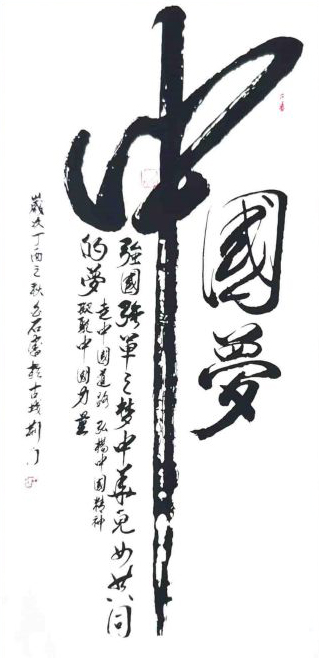 中
國夢
強國强軍之梦中華兒女共同
的夢
走中国道路 弘揚中国精神
凝聚中国力量
歲次丁酉之秋 石書於古城荆门